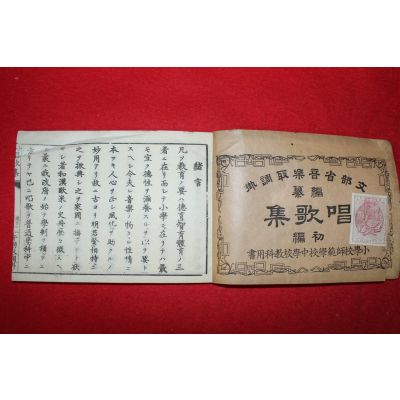 文部省音樂取調掛
編纂
唱歌集
初編
小學校師範學校中學校教科用書
緒言
凡ソ教育ノ要ハ德育智育體育ノ三
者ニ在リ而シテ小學ニ在リテハ最
モ宜ク德性ヲ涵養スルヲ以テ要ト
スヘシ今夫レ音樂ノ物タル性情ニ
本ツキ人心ヲ正シ風化ヲ助クルノ
妙用アリ故ニ古ヨリ明君賢相特ニ
之ヲ振興シ之ヲ家國ニ播サント欲
セシ者和漢歐米ノ史冊歷々徵スヘ
シ曩ニ我政府ノ始テ學制ヲ頒ツニ
方リテヤ已ニ唱歌ヲ普通學科中ニ